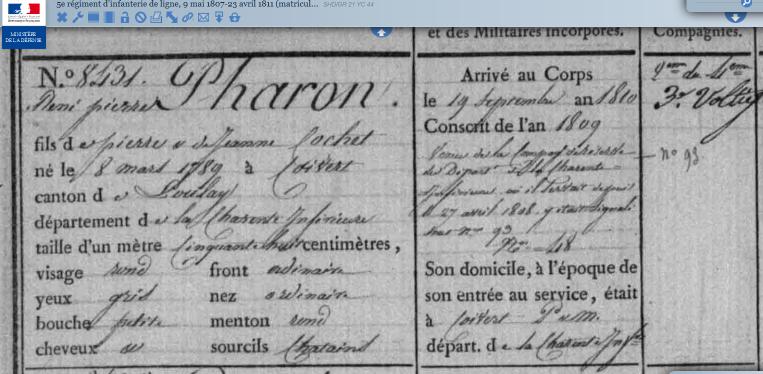 5e régiment d'infanterie de ligne, 9 mai 1807-23 avril 1811 (matricul... SHD/GR 21 YC 44
MINISTÈRE
DE LA DÉFENSE
N.º 8431. Pharon.
René pierre
fils d e pierre & de Jeanne Cochet
né le 8 mars 1789 à Coivert
canton d e Loulay
département d e la Charente Inférieure
taille d'un mètre cinquante huit centimètres,
visage rond front ordinaire
yeux gris nez ordinaire
bouche petite menton rond
cheveux et sourcils Chatains
et des Militaires incorporés.
Arrivé au Corps
le 19 Septembre an 1810
Conscrit de l'an 1809
Venu de la Compag de réserve
du Départ de la Charente
Inférieure où il servait depuis
le 27 avril 1808. y était signalé
sous nº 93
Son domicile, à l'époque de
son entrée au service, était
à Coivert
départ. d e la Charente Infre
Compagnies.
3e. Voltig
nº 93